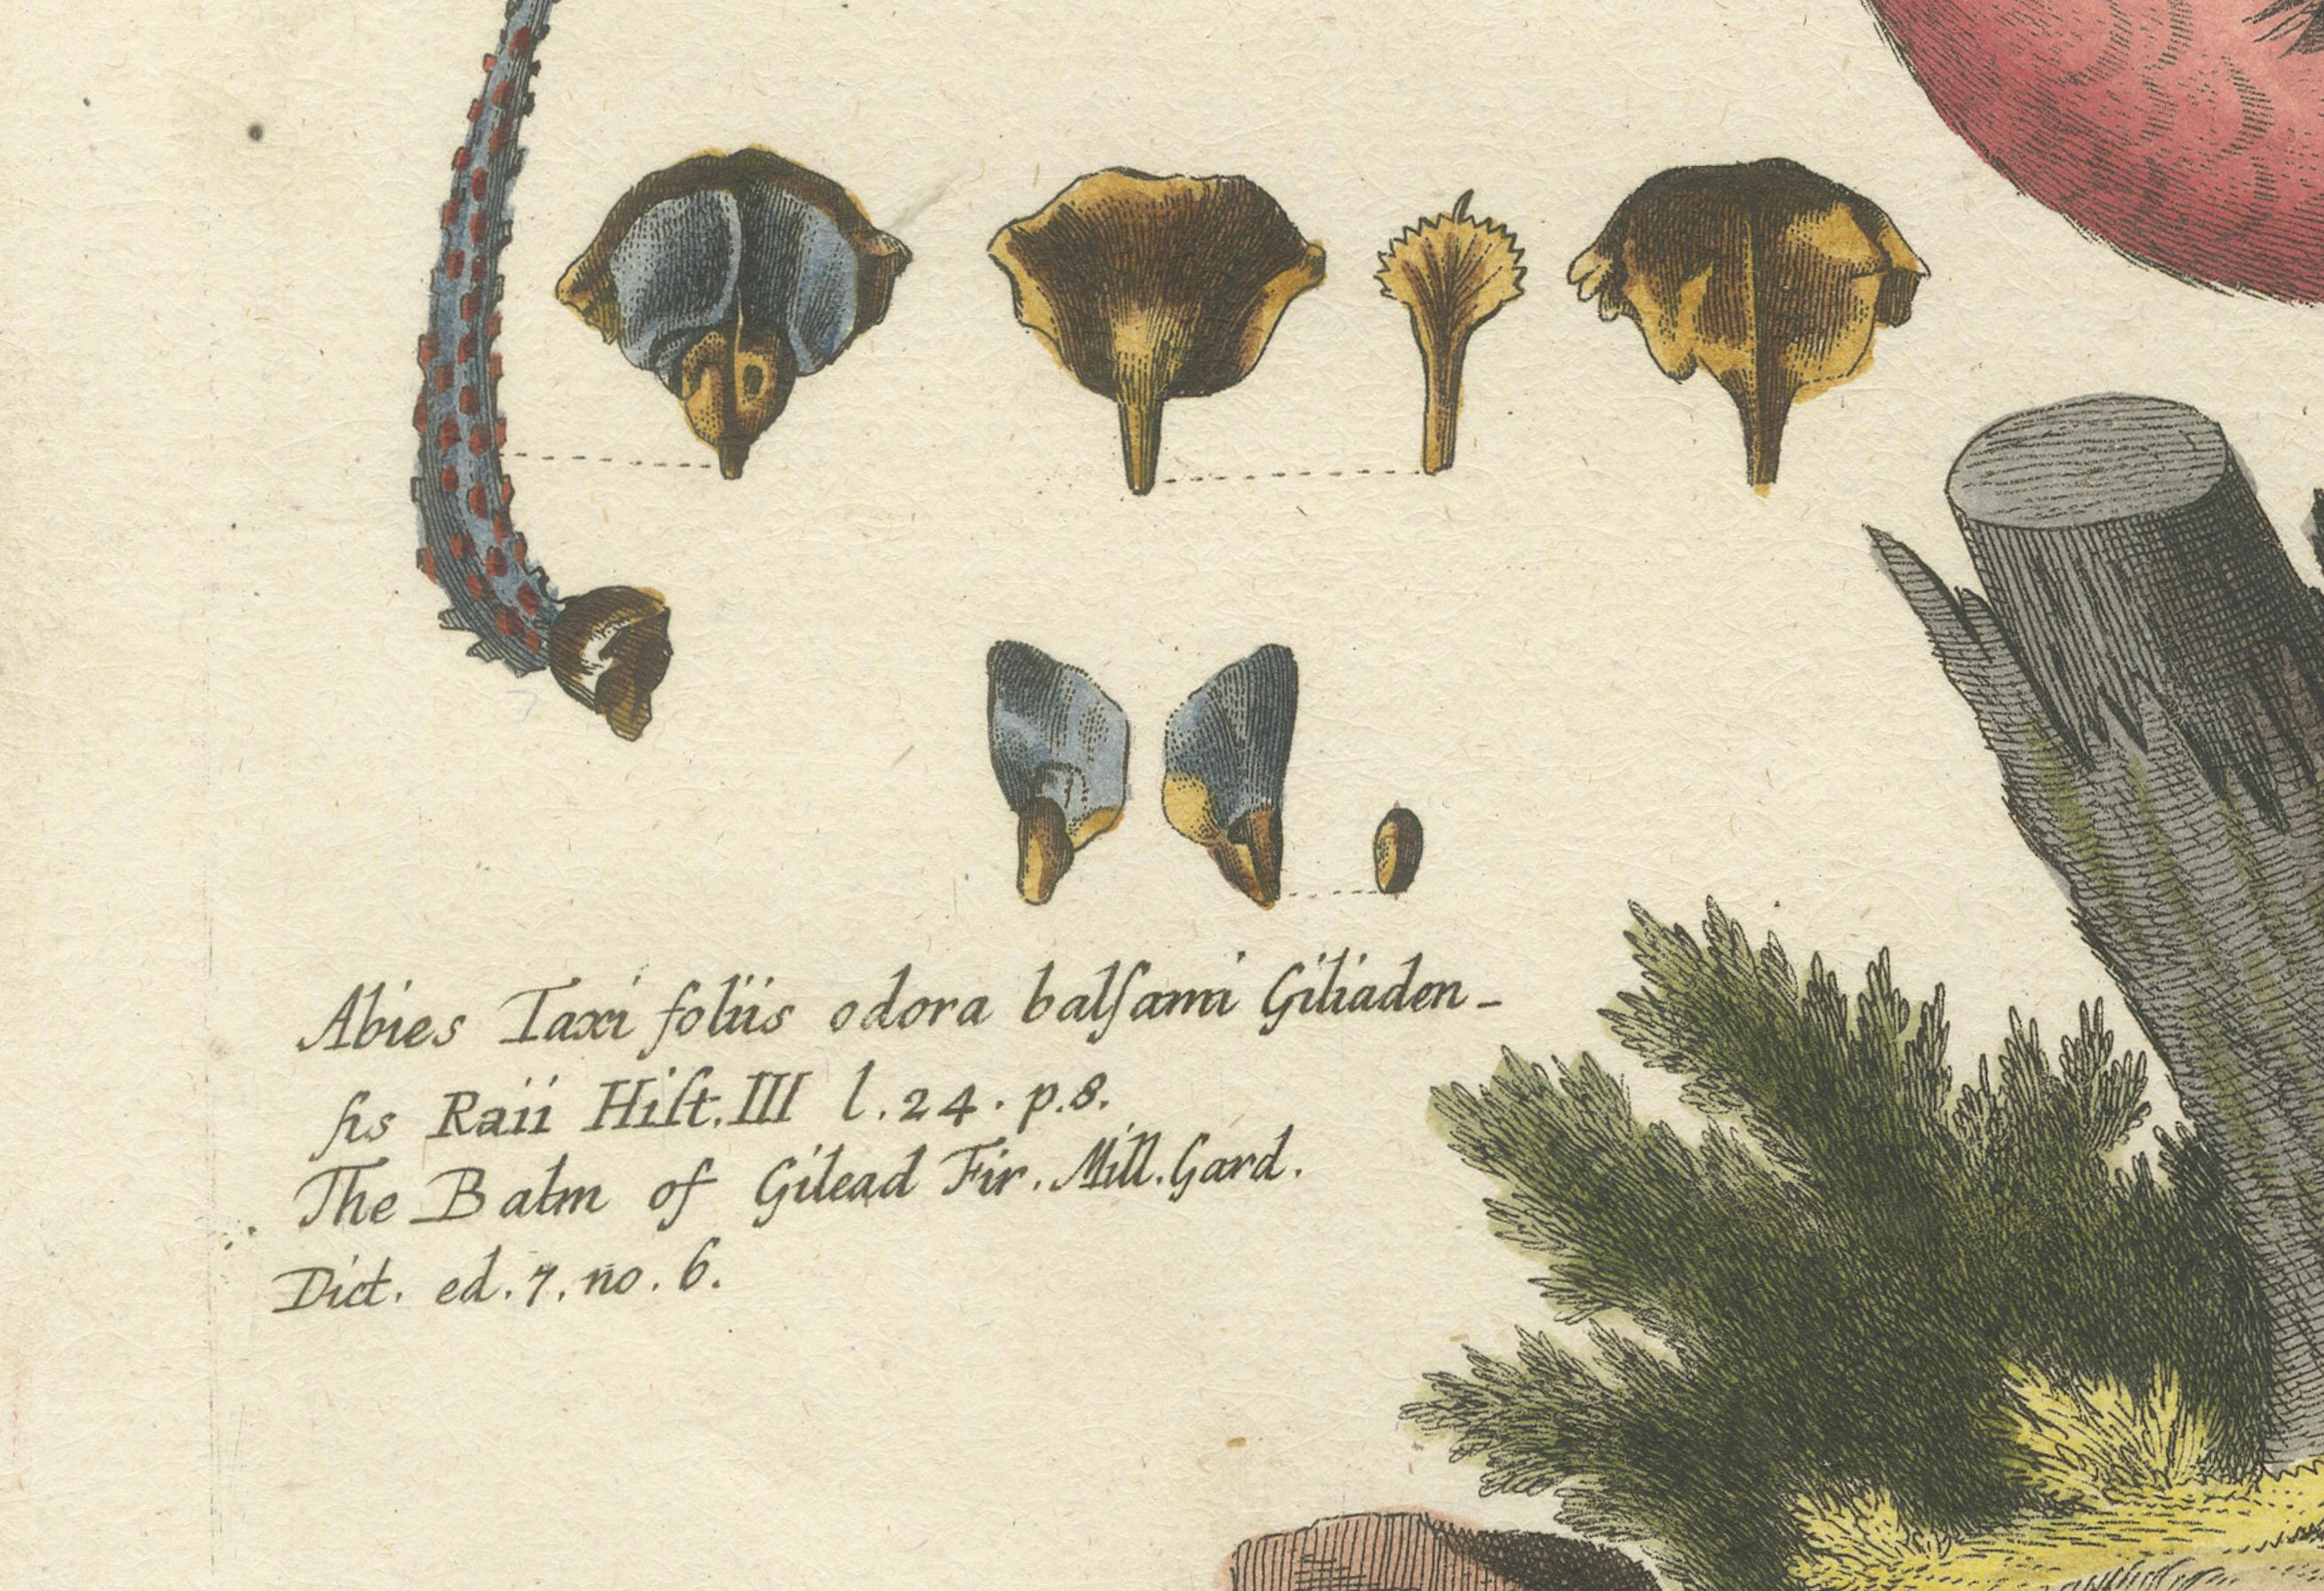 Abies Taxi foliis odora balſami Giliaden-
ſis Raii Hiſt. III l. 24. p. 8.
The Balm of Gilead Fir. Mill. Gard.
Dict. ed. 7. no. 6.